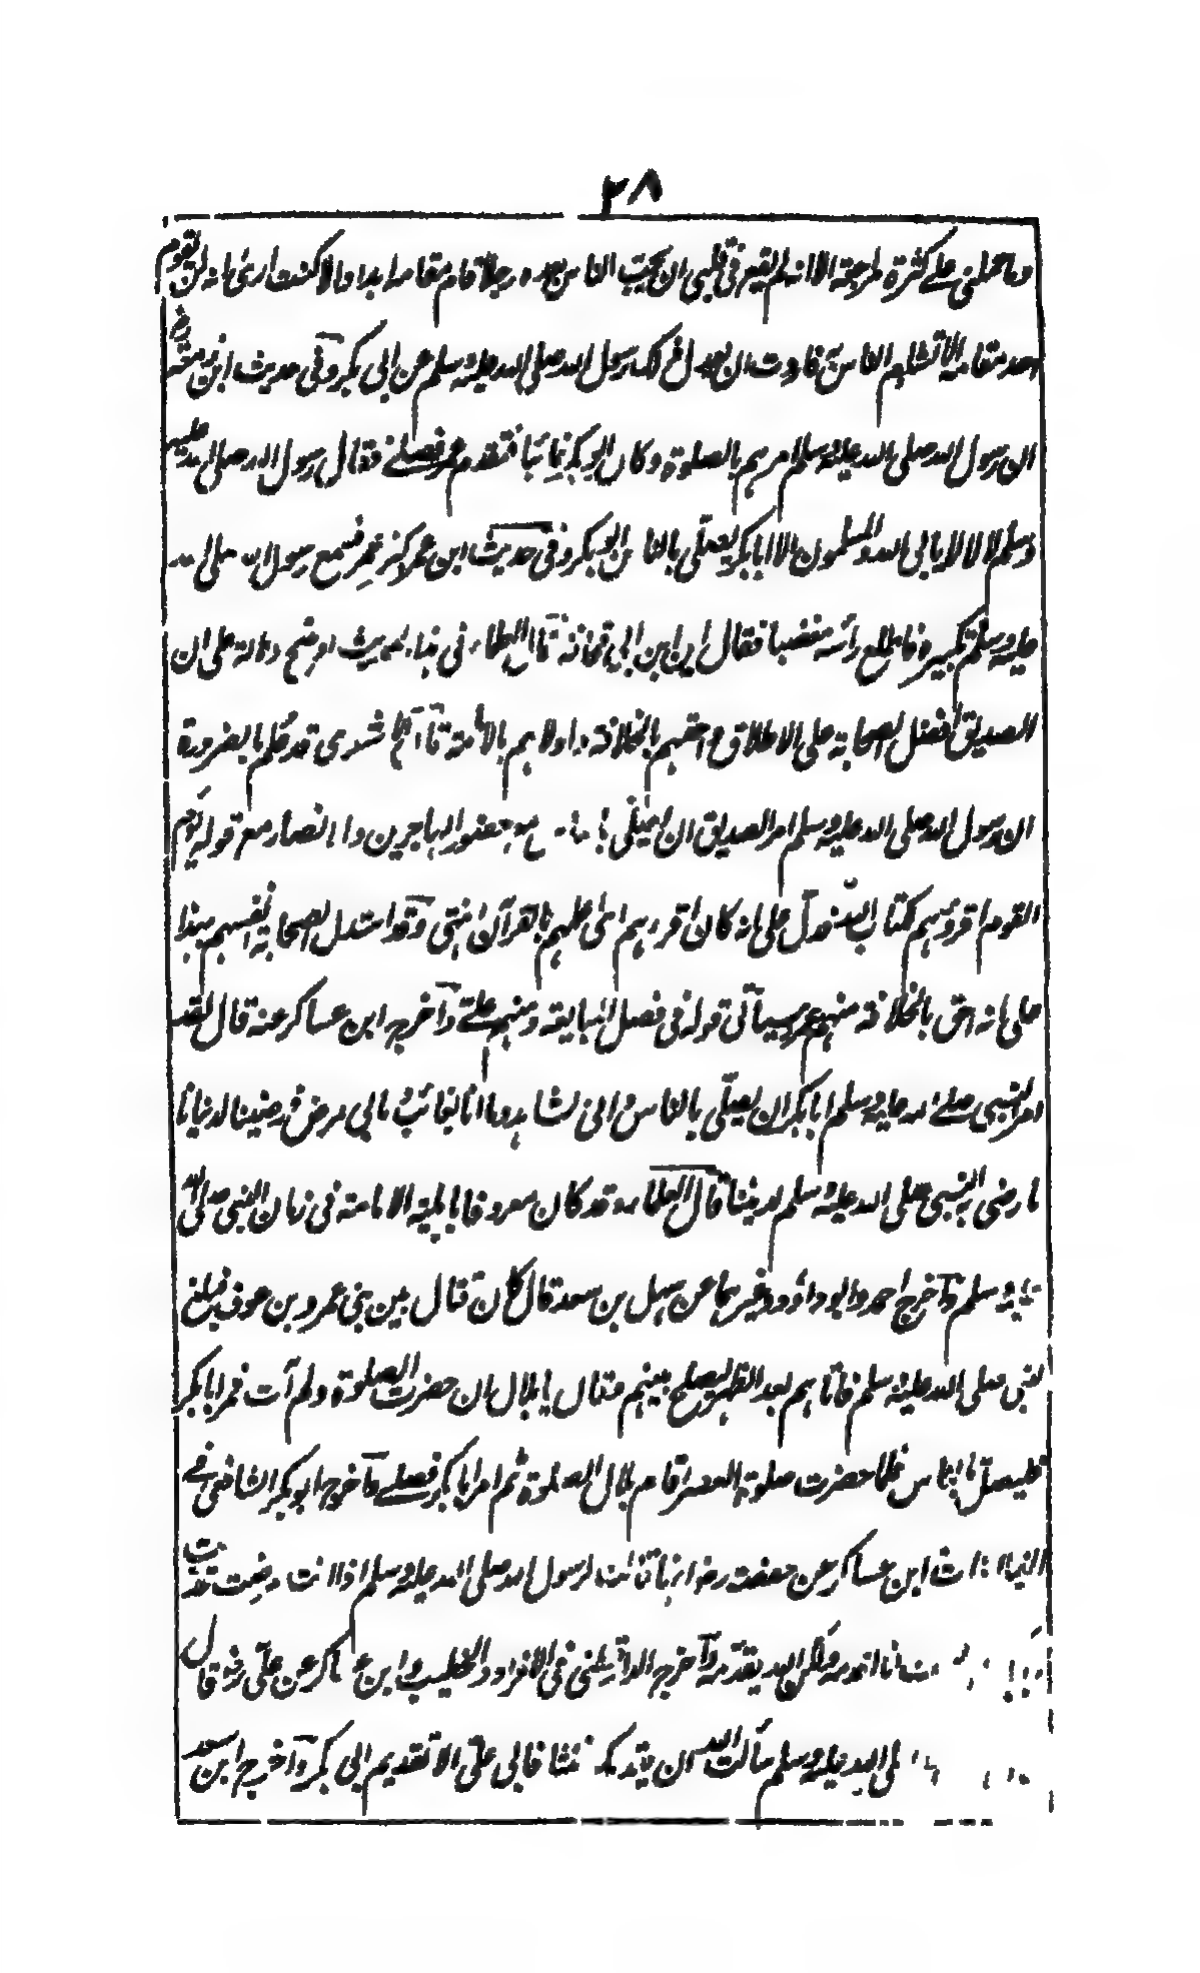 ٢٨
وما حملني على كثرة مراجعته الا انه لم يقع في قلبي ان يحب الناس بعده رجلا قام مقامه ابدا ولا كنت ارى انه لن يقوم
احد مقامه الا تشاءم الناس به فاردت ان يعدل ذلك رسول الله صلى الله عليه وسلم عن ابي بكر وفي حديث ابن زمعة
ان رسول الله صلى الله عليه وسلم امرهم بالصلوة وكان ابو بكر غائبا فتقدم عمر فصلى فقال رسول الله صلى الله عليه
وسلم لا لا لا يابى الله والمسلمون الا ابا بكر يصلي بالناس ابو بكر وفي حديث ابن عمر كبر عمر فسمع رسول الله صلى الله
عليه وسلم تكبيره فاطلع رأسه مغضبا فقال اين ابن ابي قحافة قال العلماء في هذا الحديث اوضح دلالة على ان
الصديق افضل الصحابة على الاطلاق واحقهم بالخلافة واولاهم بالامامة قال الاشعري قد علم بالضرورة
ان رسول الله صلى الله عليه وسلم امر الصديق ان يصلي بالناس مع حضور المهاجرين والانصار مع قوله يؤم
القوم اقرؤهم لكتاب الله فدل على انه كان اقرأهم اي اعلمهم بالقرآن انتهى وقد استدل الصحابة انفسهم بهذا
على انه احق بالخلافة منهم عمر وسيأتي قوله في فصل المبايعة ومنهم علي واخرج ابن عساكر عنه قال لقد
امر النبي صلى الله عليه وسلم ابا بكر ان يصلي بالناس واني لشاهد وما انا بغائب وما بي مرض فرضينا لدنيانا
ما رضي به النبي صلى الله عليه وسلم لديننا قال العلماء وقد كان معروفا باهلية الامامة في زمان النبي صلى الله
عليه وسلم واخرج احمد وابو داؤد وغيرهما عن سهل بن سعد قال كان قتال بين بني عمرو بن عوف فبلغ
النبي صلى الله عليه وسلم فاتاهم بعد الظهر ليصلح بينهم فقال يا بلال ان حضرت الصلوة ولم آت فمر ابا بكر
فليصل بالناس فلما حضرت صلوة العصر اقام بلال الصلوة ثم امر ابا بكر فصلى واخرج ابو بكر الشافعي في
الغيلانيات وابن عساكر عن حفصة رض انها قالت لرسول الله صلى الله عليه وسلم اذا انت مرضت قدمت
ابا بكر قال لست انا اقدمه ولكن الله يقدمه واخرج الدارقطني في الافراد والخطيب وابن عساكر عن علي رض قال
صلى الله عليه وسلم سألت الله ان يقدمك ثلثا فابى علي الا تقديم ابي بكر واخرج ابن سعد